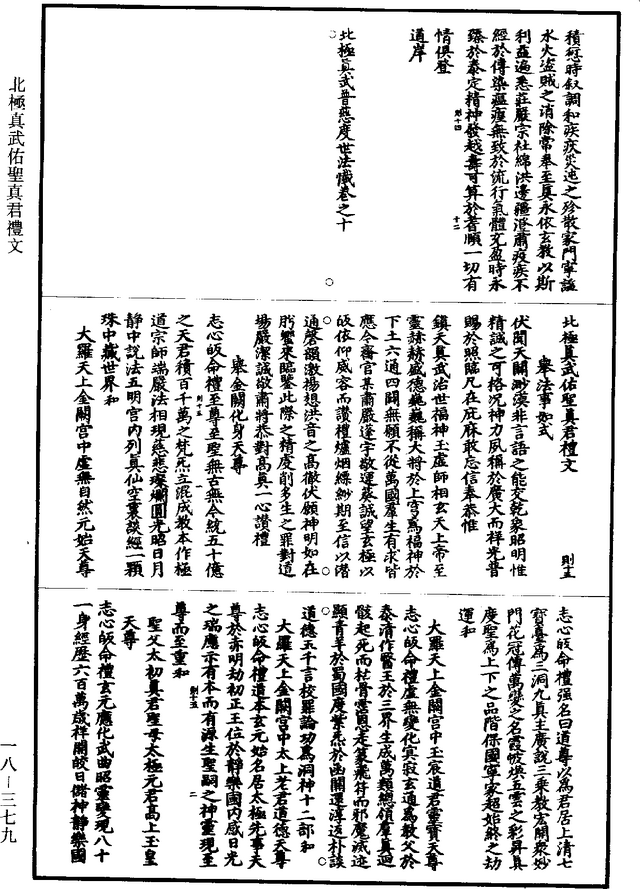 積愆時叙調和疾疢災迍之殄散家門寧謐
水火盜賊之消除常奉至真永依玄教以斯
利益遍悉莊嚴宗社綿洪邊疆澄肅疫疾不
經於傳染瘟𤺉無致於流行氣體充盈時永
臻於泰定精神發越壽可算於耆頤一切有
情俱登
道岸
北極真武普慈度世法懺卷之十
北極真武佑聖真君禮文
舉法事如式
伏聞天關渺漠非言語之能交乾象昭明惟
精誠之可格況神力夙稱於廣大而祥光普
賜於照臨凡在庇庥敢忘信奉恭惟
鎮天真武治世福神玉虛師相玄天上帝至
靈赫赫盛德巍巍稱大將於上宮為福神於
下土六通四闢無願不從萬國羣生有求皆
應今齋官某肅嚴蓬宇敬運葵誠望玄極以
皈依仰威容而讚禮爐烟縹緲期至信以潛
通磬韻激揚想洪音之高徹伏願神明如在
肹蠁來臨鑒此際之精虔削多生之罪對道
場嚴潔誠敬肅將恭對高真一心讚禮
舉金闕化身天尊
志心皈命禮至尊至聖無古無今統五十億
之天君積百千萬之梵炁立混成教本作極
道宗師端嚴法相現慈悲璨爛圓光昭日月
靜中說法五明宮內列真仙空裏談經一顆
珠中藏世界和
大羅天上金闕宮中虛無自然元始天尊
志心皈命禮強名曰道尊以為君居上清七
寶臺為三洞九真主廣說三乘教宏開衆妙
門花冠傳萬變之名霞帔煥五雲之彩昇真
度聖為上下之品階保國寧家超始終之劫
運和
大羅天上金闕宮中玉宸道君靈寶天尊
志心皈命禮虛無變化寂寂玄通為教父於
泰清作醫王於三界生成萬類總領羣真迴
骸起死而枯骨霑恩走篆飛符而邪魔滅迹
顯青羊於蜀國度紫炁於函關還淳返朴談
道德五千言校罪論功為洞神十二部和
大羅天上金闕宮中太上老君道德天尊
志心皈命禮道本玄元始名居太極先事天
尊於赤明劫初正王位於靜樂國內感日光
之瑞應亦有本而有源生聖嗣之神靈現至
尊而至重和
聖父太初真君聖母太極元君高上玉皇
天尊
志心皈命禮玄元應化武曲昭靈變現八十
一身經歷六百萬歲祥開皎日儲神靜樂國
北極真武佑聖真君禮文
一八—三七九